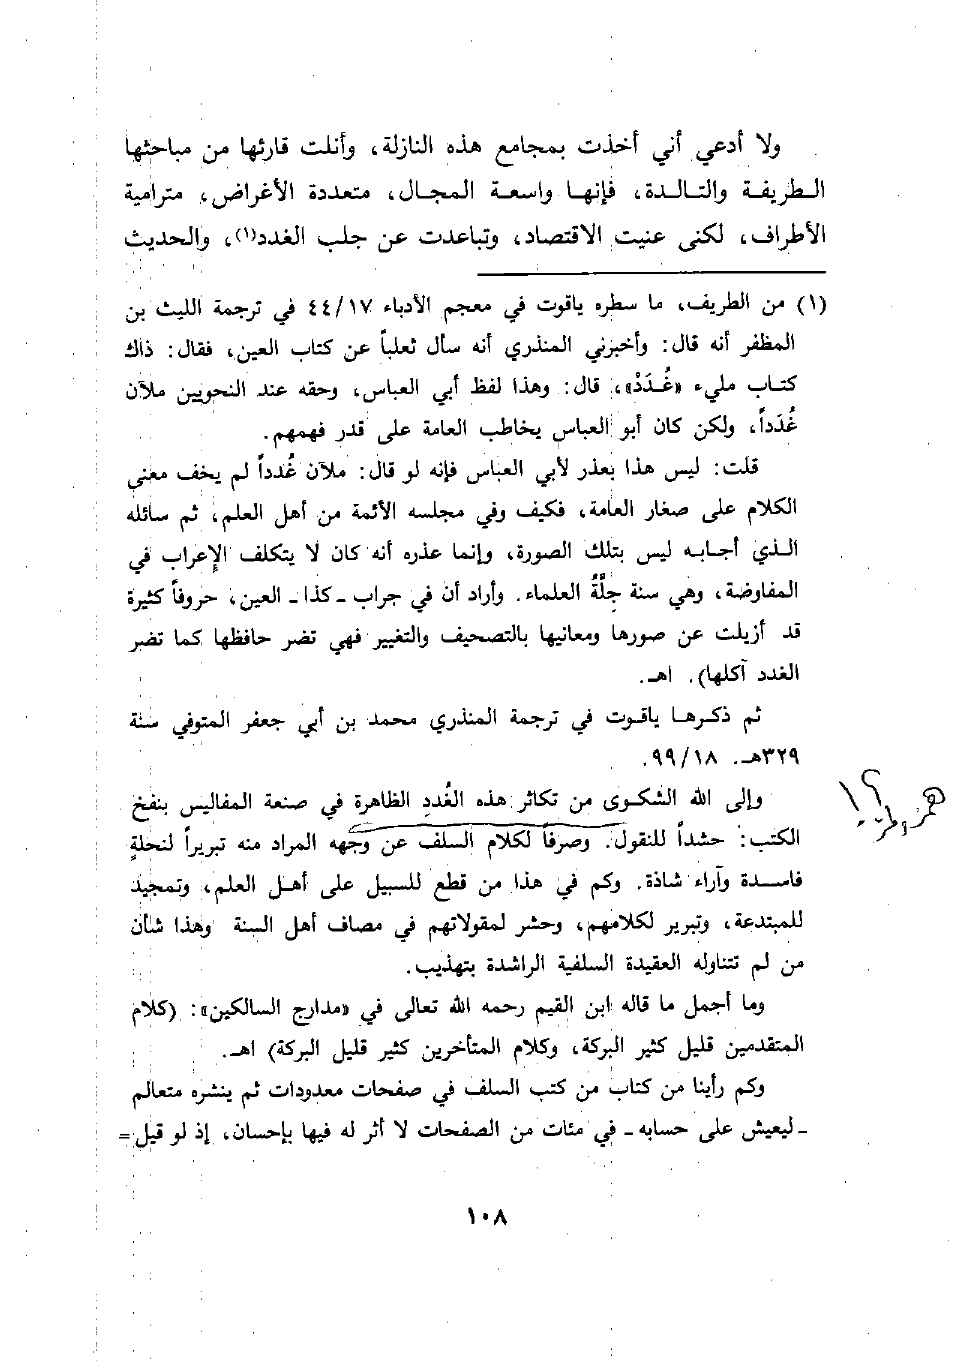 ولا أدعي أني أخذت بمجامع هذه النازلة، وأنلت قارئها من مباحثها
الطريفة والتالدة، فإنها واسعة المجال، متعددة الأغراض، مترامية
الأطراف، لكنى عنيت الاقتصاد، وتباعدت عن جلب الغدد(١)، والحديث
(١) من الطريف، ما سطره ياقوت في معجم الأدباء ٤٤/١٧ في ترجمة الليث بن
المظفر أنه قال: وأخبرني المنذري أنه سأل ثعلباً عن كتاب العين، فقال: ذاك
كتاب مليء «غُدَدْ»، قال: وهذا لفظ أبي العباس، وحقه عند النحويين ملآن
غُدَداً، ولكن كان أبو العباس يخاطب العامة على قدر فهمهم.
قلت: ليس هذا بعذر لأبي العباس فإنه لو قال: ملآن غُدداً لم يخف معنى
الكلام على صغار العامة، فكيف وفي مجلسه الأئمة من أهل العلم، ثم سائله
الذي أجابه ليس بتلك الصورة، وإنما عذره أنه كان لا يتكلف الإعراب في
المفاوضة، وهي سنة جِلَّةُ العلماء. وأراد أن في جراب ـ كذا ـ العين، حروفاً كثيرة
قد أزيلت عن صورها ومعانيها بالتصحيف والتغيير فهي تضر حافظها كما تضر
الغدد آكلها). اهـ.
ثم ذكرها ياقوت في ترجمة المنذري محمد بن أبي جعفر المتوفي سنة
٣٢٩هـ. ٩٩/١٨.
وإلى الله الشكوى من تكاثر هذه الغُددِ الظاهرة في صنعة المفاليس بنفخ
الكتب: حشداً للنقول. وصرفاً لكلام السلف عن وجهه المراد منه تبريراً لنحلةٍ
فاسدة وآراء شاذة. وكم في هذا من قطع للسبيل على أهل العلم، وتمجيد
للمبتدعة، وتبرير لكلامهم، وحشر لمقولاتهم في مصاف أهل السنة وهذا شأن
من لم تتناوله العقيدة السلفية الراشدة بتهذيب.
وما أجمل ما قاله ابن القيم رحمه الله تعالى في «مدارج السالكين»: (كلام
المتقدمين قليل كثير البركة، وكلام المتأخرين كثير قليل البركة) اهـ.
وكم رأينا من كتاب من كتب السلف في صفحات معدودات ثم ينشره متعالم
ـ ليعيش على حسابه ـ في مئات من الصفحات لا أثر له فيها بإحسان، إذ لو قيل =
١٠٨